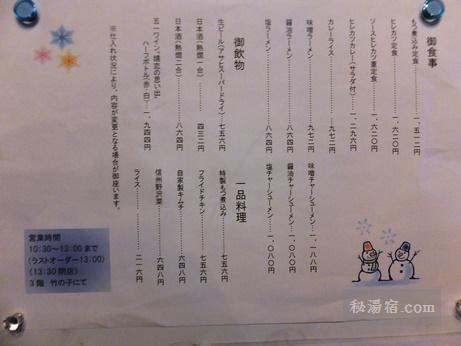 御食事
もつ煮込み定食……一、五一二
ヒレカツ定食……一、六二〇
ソースヒレカツ重定食……一、六二〇
ヒレカツカレー(サラダ付)……一、二九六
カレーライス……九七二
味噌ラーメン……九七二
醤油ラーメン……八六四
塩ラーメン……八六四
味噌チャーシューメン……一、一八八
醤油チャーシューメン……一、〇八〇
塩チャーシューメン……一、〇八〇
御飲物
生ビール(アサヒスーパードライ)……七五六
日本酒(熱燗一合)……四三二
日本酒(熱燗二合)……八六四
五一ワイン、嬬恋の思い出。
ハーフボトル(赤・白)……一、九四四
一品料理
特製もつ煮込み……七五六
フライドチキン……七五六
自家製キムチ……六四八
信州野沢菜……六四八
ライス……二一六
※仕入れ状況により、内容が変更となる場合が御座います。
営業時間
10:30~13:00まで
(ラストオーダー13:00)
(13:30閉店)
3階 竹の子にて
秘湯宿.com